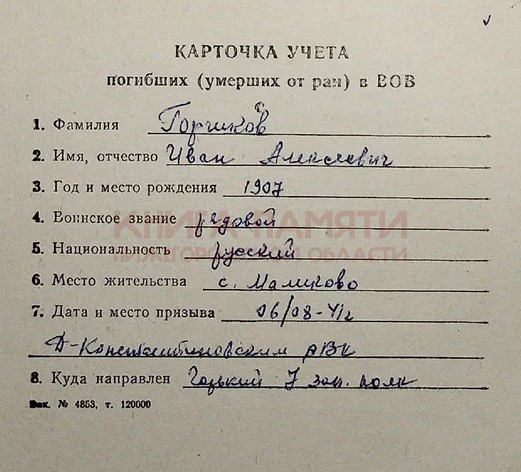 КАРТОЧКА УЧЕТА
погибших (умерших от ран) в ВОВ
1. Фамилия Горчиков
2. Имя, отчество Иван Алексеевич
3. Год и место рождения 1907
4. Воинское звание рядовой
КНИГА ПАМЯТИ
5. Национальность русский
НИЖЕГОРОДСКОЙ ОБЛАСТИ
6. Место жительства с. Маликово
7. Дата и место призыва 06/08-41г
Д-Константиновским РВК
8. Куда направлен Горький 7 зап. полк
Зак. № 4853, т. 120000